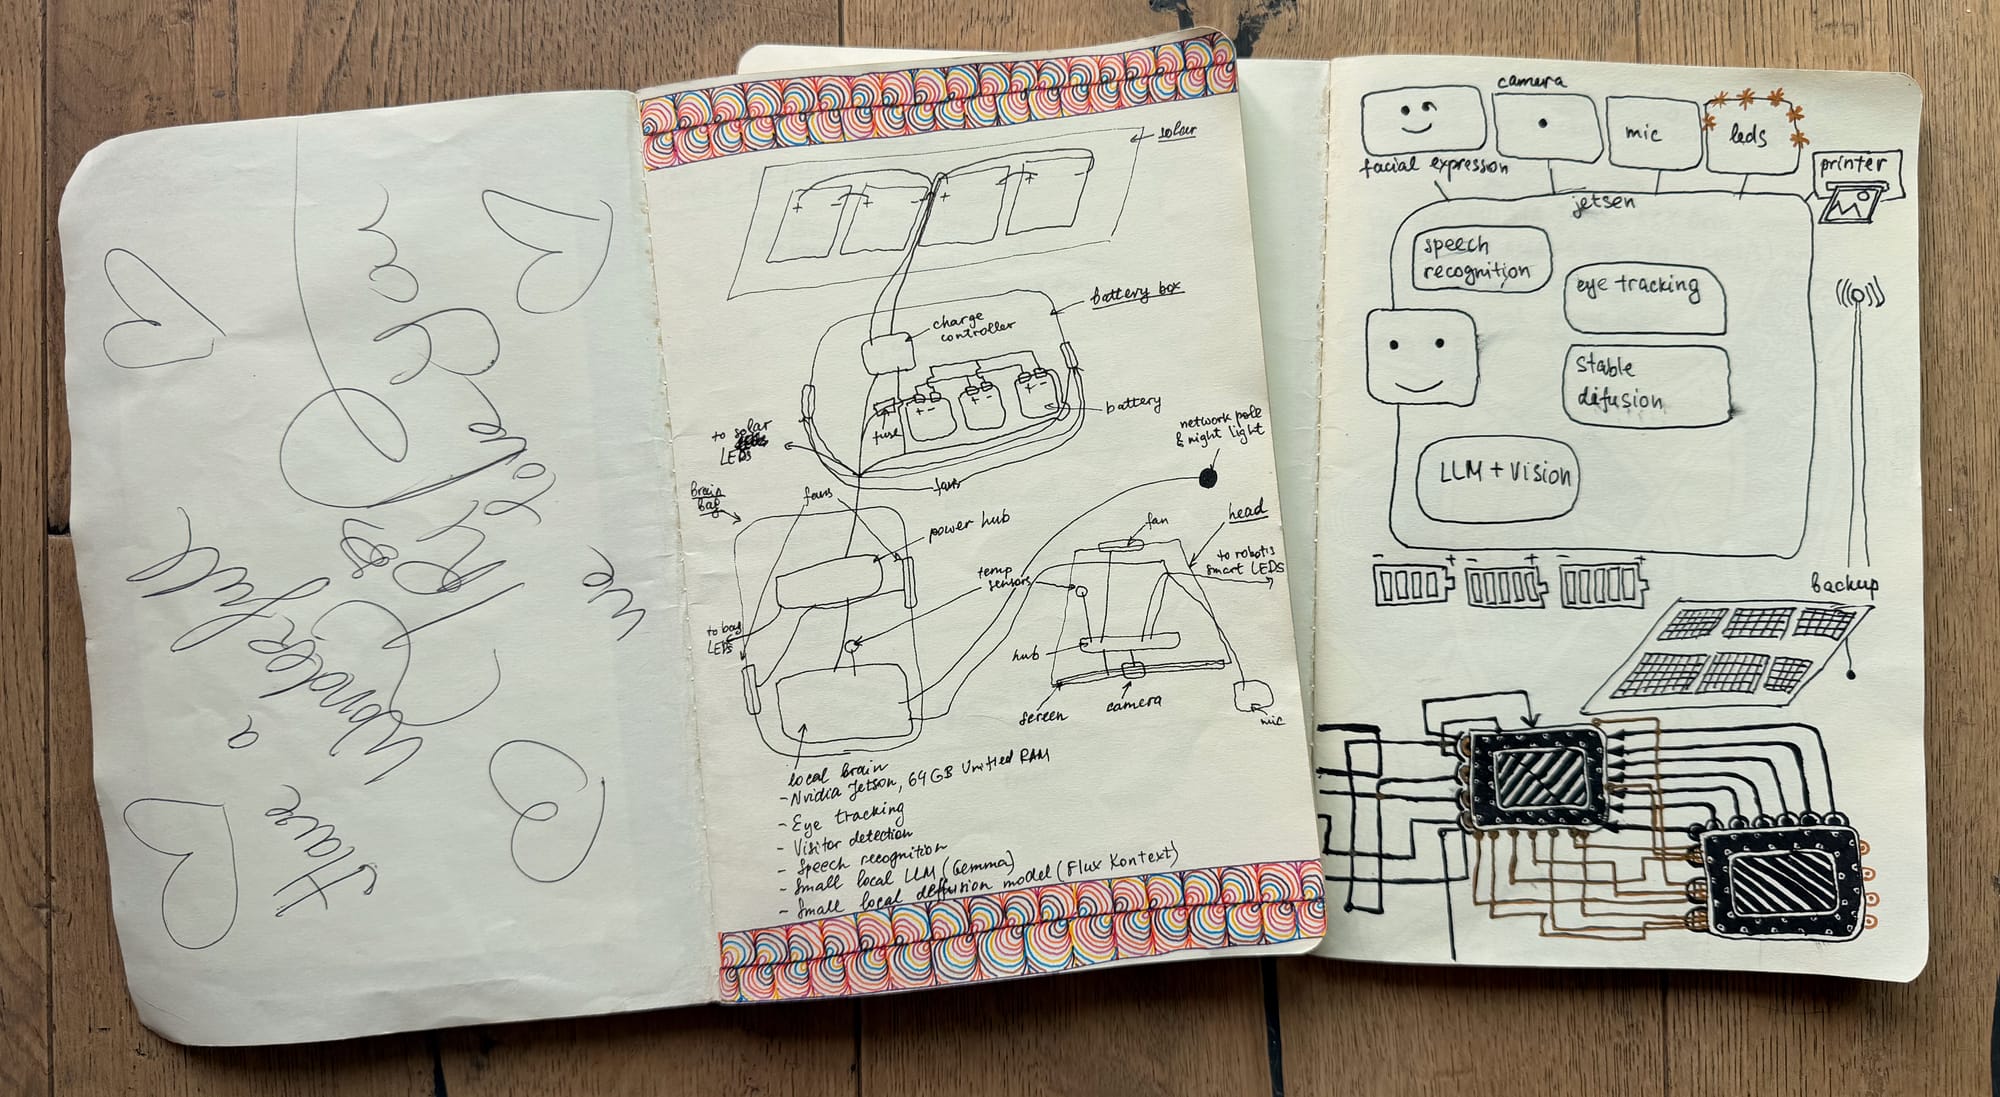 Have a
Wonderfull
we
solar
battery box
charge
controller
+ -
+ -
+
+ -
fuse
+ -
+ -
+ -
battery
to solar
LEDs
fans
network pole
& night light
brain
bag
fans
power hub
fan
head
to robotis
smart LEDs
temp
sensors
to bag
LEDs
hub
screen
camera
mic
local brain
- Nvidia Jetson, 64GB Unified RAM
- Eye tracking
- Visitor detection
- Speech recognition
- Small local LLM (Gemma)
- Small local deffusion model (Flux Kontext)
camera
mic
leds
facial expression
printer
jetsen
speech
recognition
eye tracking
stable
difusion
LLM + Vision
- +
- +
- +
backup